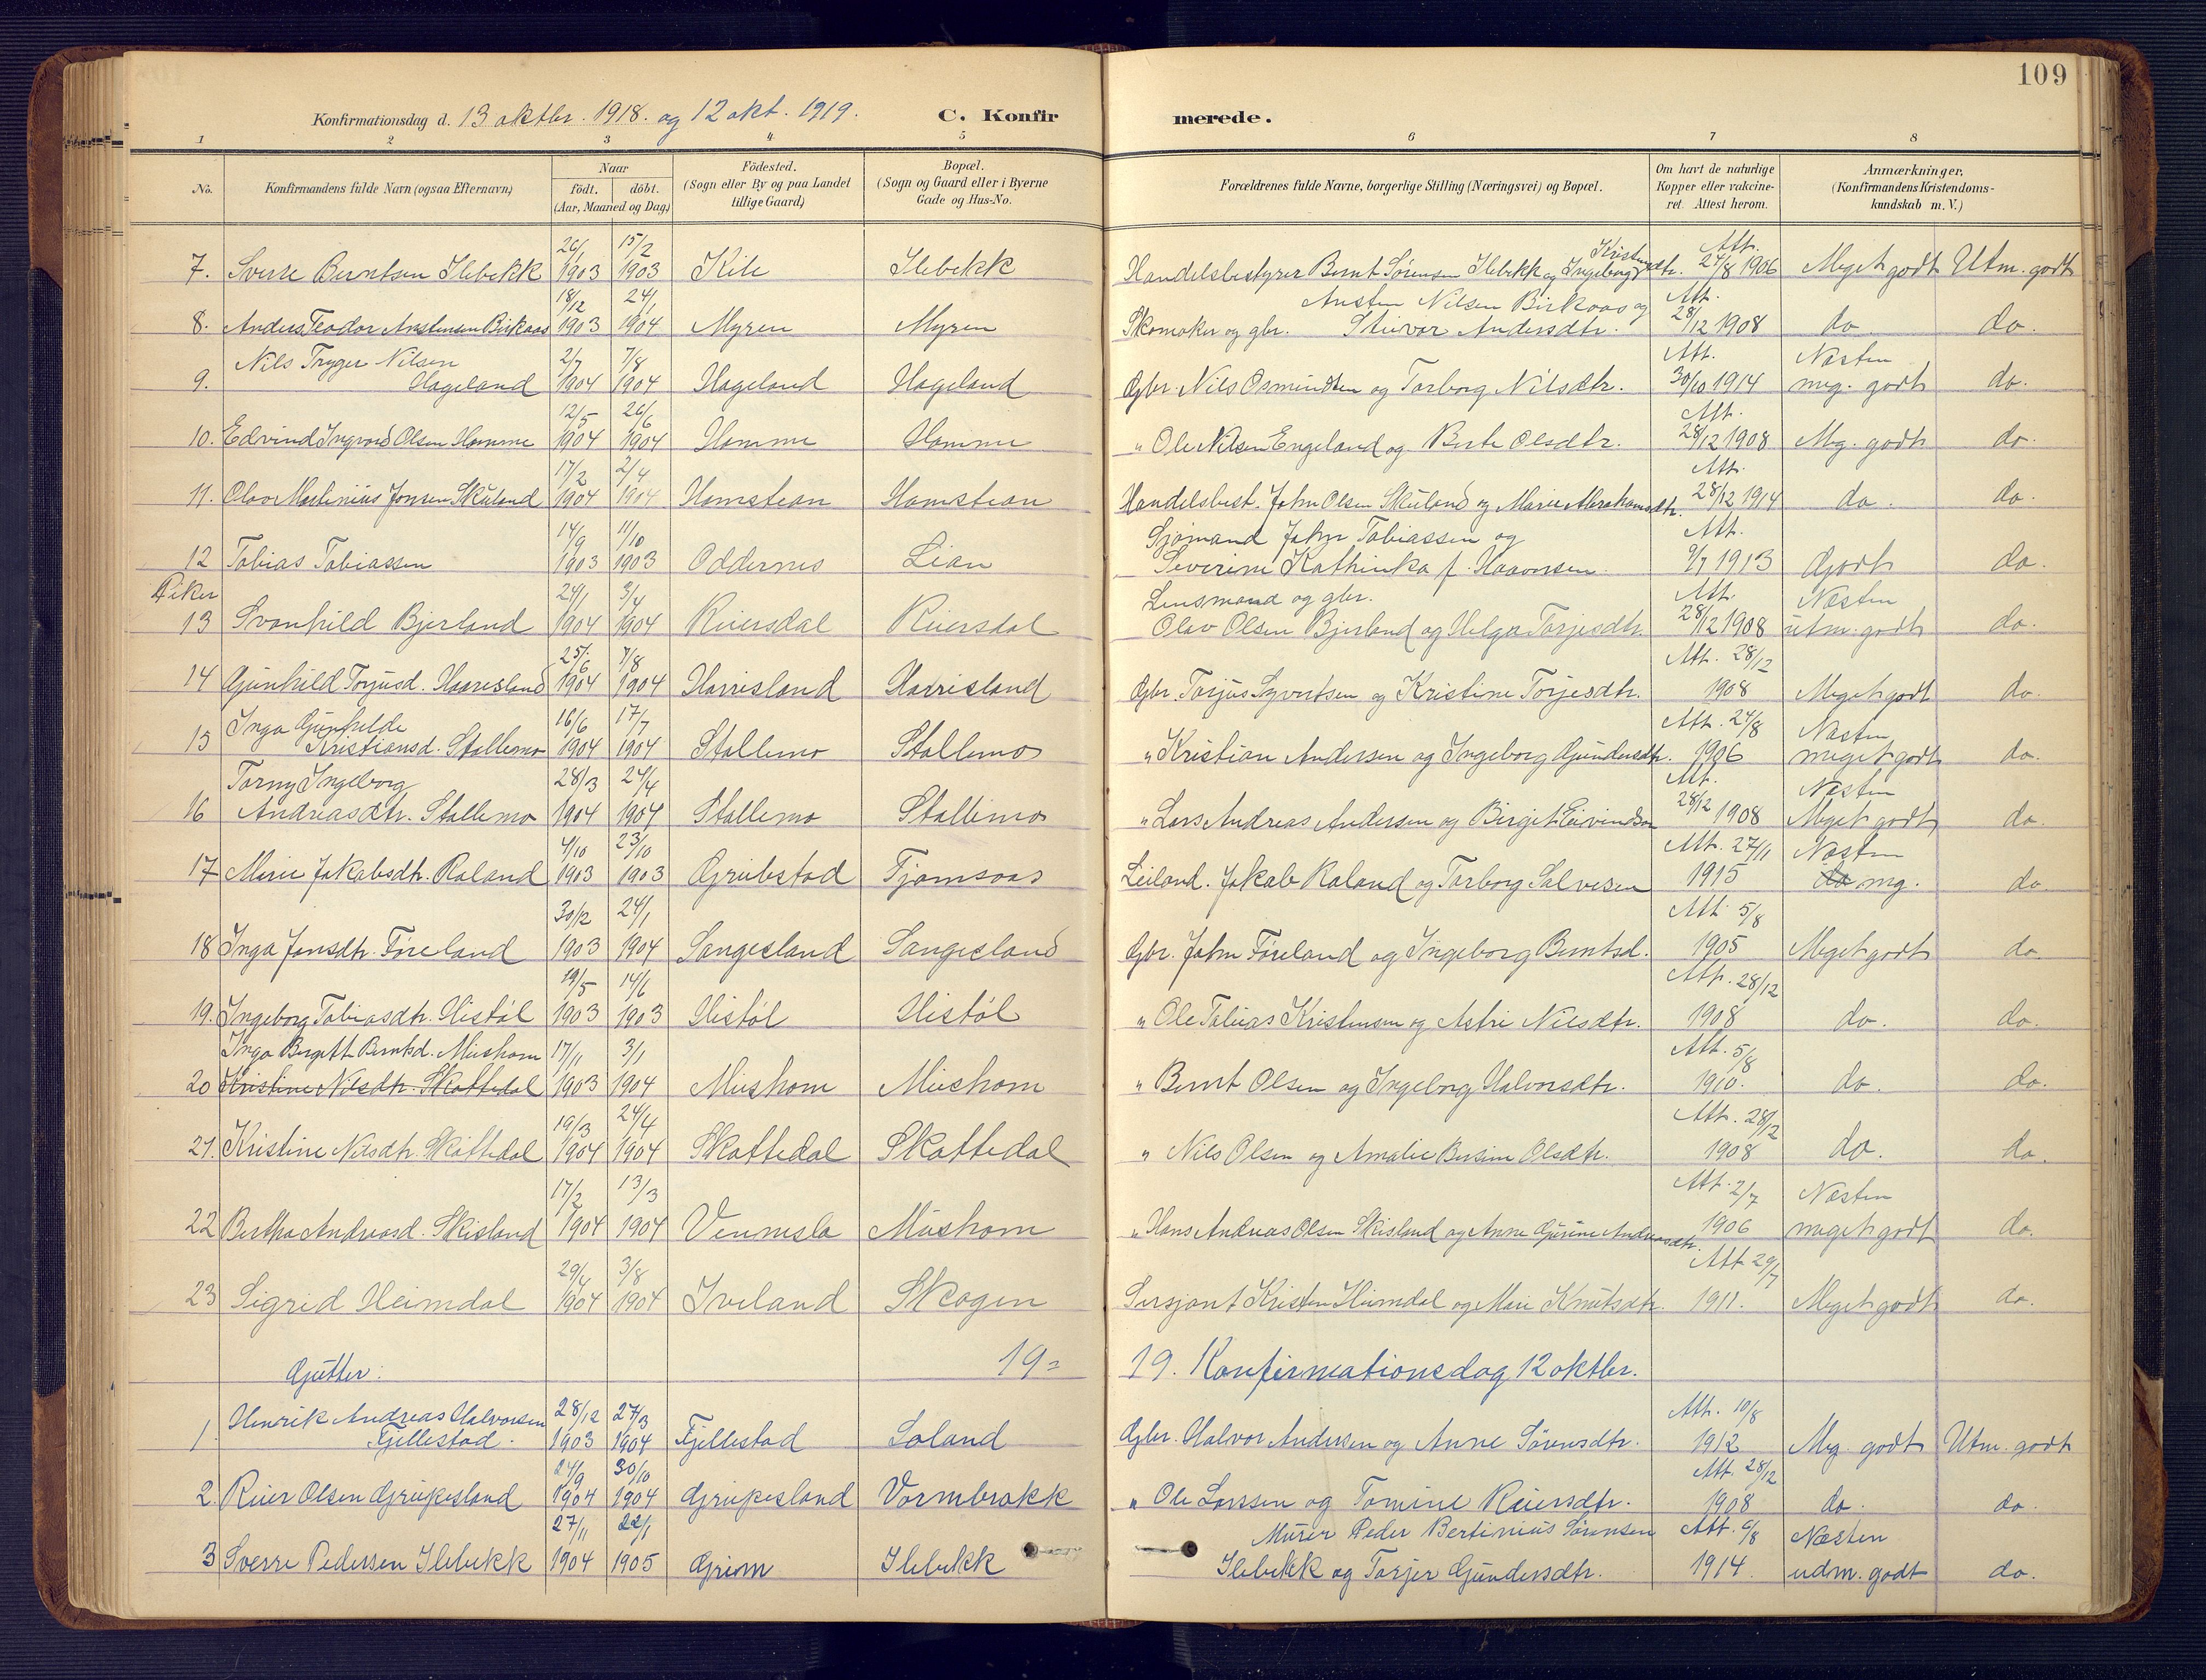 109
Konfirmationsdag d. 13 oktbr. 1918. og 12 okt. 1919. C. Konfirmerede.
1 2 3 4 5 6 7 8
No. Konfirmandens fulde Navn (ogsaa Efternavn) Naar født. døbt. (Aar, Maaned og Dag) Födested. (Sogn eller By og paa Landet tillige Gaard) Bopæl. (Sogn og Gaard eller i Byerne Gade og Hus-No. Forældrenes fulde Navne, borgerlige Stilling (Næringsvei) og Bopæl. Om havt de naturlige Kopper eller vakcineret. Attest herom. Anmærkninger. (Konfirmandens Kristendomskundskab m. V.)
7. Sverre Berntsen Ilebekk 26/1 1903 15/2 1903 Kile Ilebekk Handelsbestyrer Bernt Sørensen Ilebekk og Ingeborg Kristensdtr. Att. 24/8 1906 Meget godt Utm. godt
8. Anders Teodor Austensen Birkaas 18/12 1903 24/1 1904 Myren Myren Skomaker og gbr. Austen Nilsen Birkaas og Andersdtr. Att. 28/12 1908 do do.
9. Nils Trygve Nilsen Hageland 2/7 1904 7/8 1904 Hageland Hageland Gbr. Nils Osmundsen og Torborg Nilsdtr. Att. 30/10 1914 Næsten meg. godt do.
10. Edvind Ingvard Olsen Homme 12/5 1904 26/6 1904 Homme Homme " Ole Nilsen Engeland og Berte Olsdtr. Att. 28/12 1908 Mg. godt do.
11. Olav Martinius Jonsen Skuland 17/2 1904 2/4 1904 Homstean Homstean Handelsbest. John Olsen Skuland og Marie Abrahamsdtr. Att. 28/12 1914 do. do.
12 Tobias Tobiassen 14/9 1903 11/10 1903 Oddernes Lian Sjømand John Tobiassen og Severine Kathinka f. Haavorsen. Att. 9/7 1913 Godt do.
Piker
13 Svanhild Bjerland 24/1 1904 3/4 1904 Reiersdal Reiersdal Lensmand og gbr. Olav Olsen Bjerland og Helga Torjesdtr. Att. 28/12 1908 Næsten utm. godt do.
14 Gunhild Torjusd. Haarisland 25/6 1904 7/8 1904 Harrisland Harrisland Gbr. Torjus Syvertsen og Kristine Torjesdtr. Att. 28/12 1908 Meget godt do.
15 Inga Gunhilde Kristiansd. Stallemo 16/6 1904 17/7 1904 Stallemo Stallemo " Kristian Andersen og Ingeborg Gundersdtr. Att. 24/8 1906 Næsten meget godt do.
16 Torny Ingeborg Andreasdtr. Stallemo 28/3 1904 24/4 1904 Stallemo Stallemo " Lars Andreas Andersen og Birgit Eivindsen Att. 28/12 1908 Næsten Meget godt do.
17 Marie Jakobsdtr. Raland 4/10 1903 23/10 1903 Grubestad Tjomsaas Leiland. Jakob Raland og Torborg Salvesen Att. 27/11 1915 Næsten do mg. do
18 Inga Jonsdtr. Føreland 30/12 1903 24/1 1904 Sangesland Sangesland Gbr. John Føreland og Ingeborg Berntsd. Att. 5/8 1905 Meget godt do.
19. Ingeborg Tobiasdtr. Histøl 19/5 1903 14/6 1903 Histøl Histøl " Ole Tobias Kristensen og Astri Nilsdtr. Att. 28/12 1908 do. do.
20 Inga Birgitt Berntsd. Mushom Kristine Nilsdtr. Skottedal 17/11 1903 3/1 1904 Mushom Mushom " Bernt Olsen og Ingeborg Halvorsdtr. Att. 5/8 1910. do. do.
21. Kristine Nilsdtr. Skottedal 19/3 1904 24/4 1904 Skottedal Skottedal " Nils Olsen og Amalie Bersine Olsdtr. Att. 28/12 1908 do. do.
22 Bertha Andreasd. Skisland 17/2 1904 13/3 1904 Vennesla Mushom " Hans Andreas Olsen Skisland og Anne Gurine Andreasdtr. Att. 2/7 1906 Næsten meget godt do.
23 Sigrid Heimdal 29/4 1904 3/8 1904 Iveland Skogen Sersjant Kristen Heimdal og Mari Knutsdtr. Att 29/7 1911. Meget godt do.
Gutter: 19= 19. Konfirmationsdag 12 oktbr.
1 Henrik Andreas Halvorsen Fjellestad. 28/12 1903 27/3 1904 Fjellestad Loland Gbr. Halvor Andersen og Anne Sørensdtr. Att. 10/8 1912 Mg. godt Utm. godt
2. Reier Olsen Grupesland 24/9 1904 30/10 1904 Grupesland Vormbrokk " Ole Larssen og Tomine Reiersdtr. Att. 28/12 1908 do. do.
3 Sverre Pedersen Ilebekk 27/11 1904 22/1 1905 Grim Ilebekk Murer Peder Bertinius Sørensen Ilebekk og Torjer Gundersdtr. Att. 6/8 1914. Næsten udm. godt do.